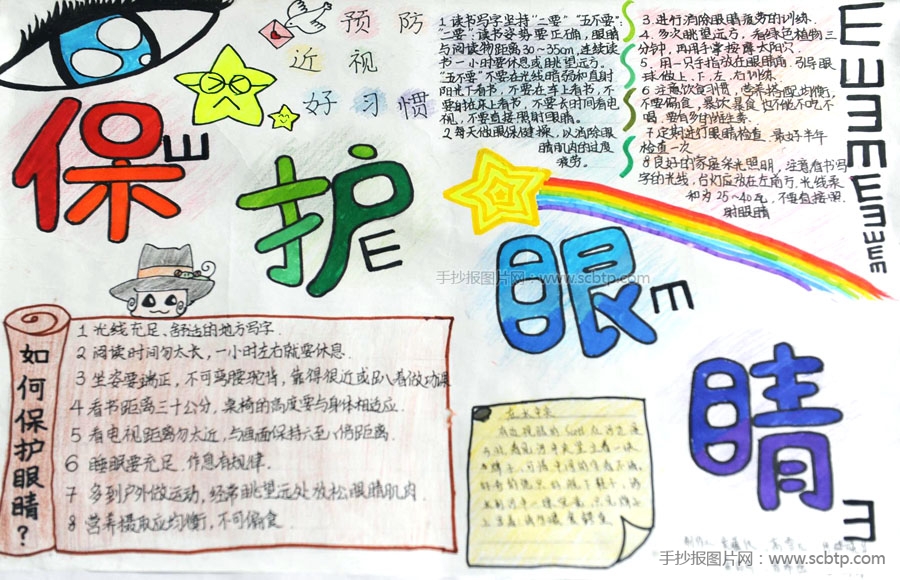 预防
近视
好习惯
保护眼睛
1 读书写字坚持"二要""五不要":
"二要":读书姿势要正确,眼睛
与阅读物距离30~35cm,连续读
书一小时要休息或眺望远方.
"五不要"不要在光线暗弱和直射
阳光下看书,不要在车上看书,不
要躺在床上看书,不要长时间看电
视,不要直接照射眼睛。
2 每天做眼保健操,以消除眼
睛肌肉的过度
疲劳。
3. 进行消除眼睛疲劳的训练.
4. 多次眺望远方,看绿色植物三
分钟,再用手掌按摩太阳穴.
5. 用一只手指放在眼睛前,引导眼
球做上、下、左、右训练.
6 注意饮食习惯,营养搭配均衡,
不要偏食,暴饮暴食也不能不吃不
喝.要有多的维生素.
7 定期进行眼睛检查.最好半年
检查一次
8 良好的家庭采光照明,注意看书写
字的光线,台灯应放在左前方.光线柔
和为25~40瓦,不要直接照
射眼睛
手抄报图片网:www.scbtp.com
如何保护眼睛?
1 光线充足、舒适的地方写字.
2 阅读时间勿太长,一小时左右就要休息.
3 坐姿要端正,不可弯腰驼背,靠得很近或趴着做功课
4 看书距离三十公分,桌椅的高度要与身体相适应.
5 看电视距离勿太近,与画面保持六至八倍距离.
6 睡眠要充足.作息有规律.
7 多到户外做运动,经常眺望远处放松眼睛肌肉.
8 营养摄取应均衡,不可偏食.
手抄报图片网:www.scbtp.com